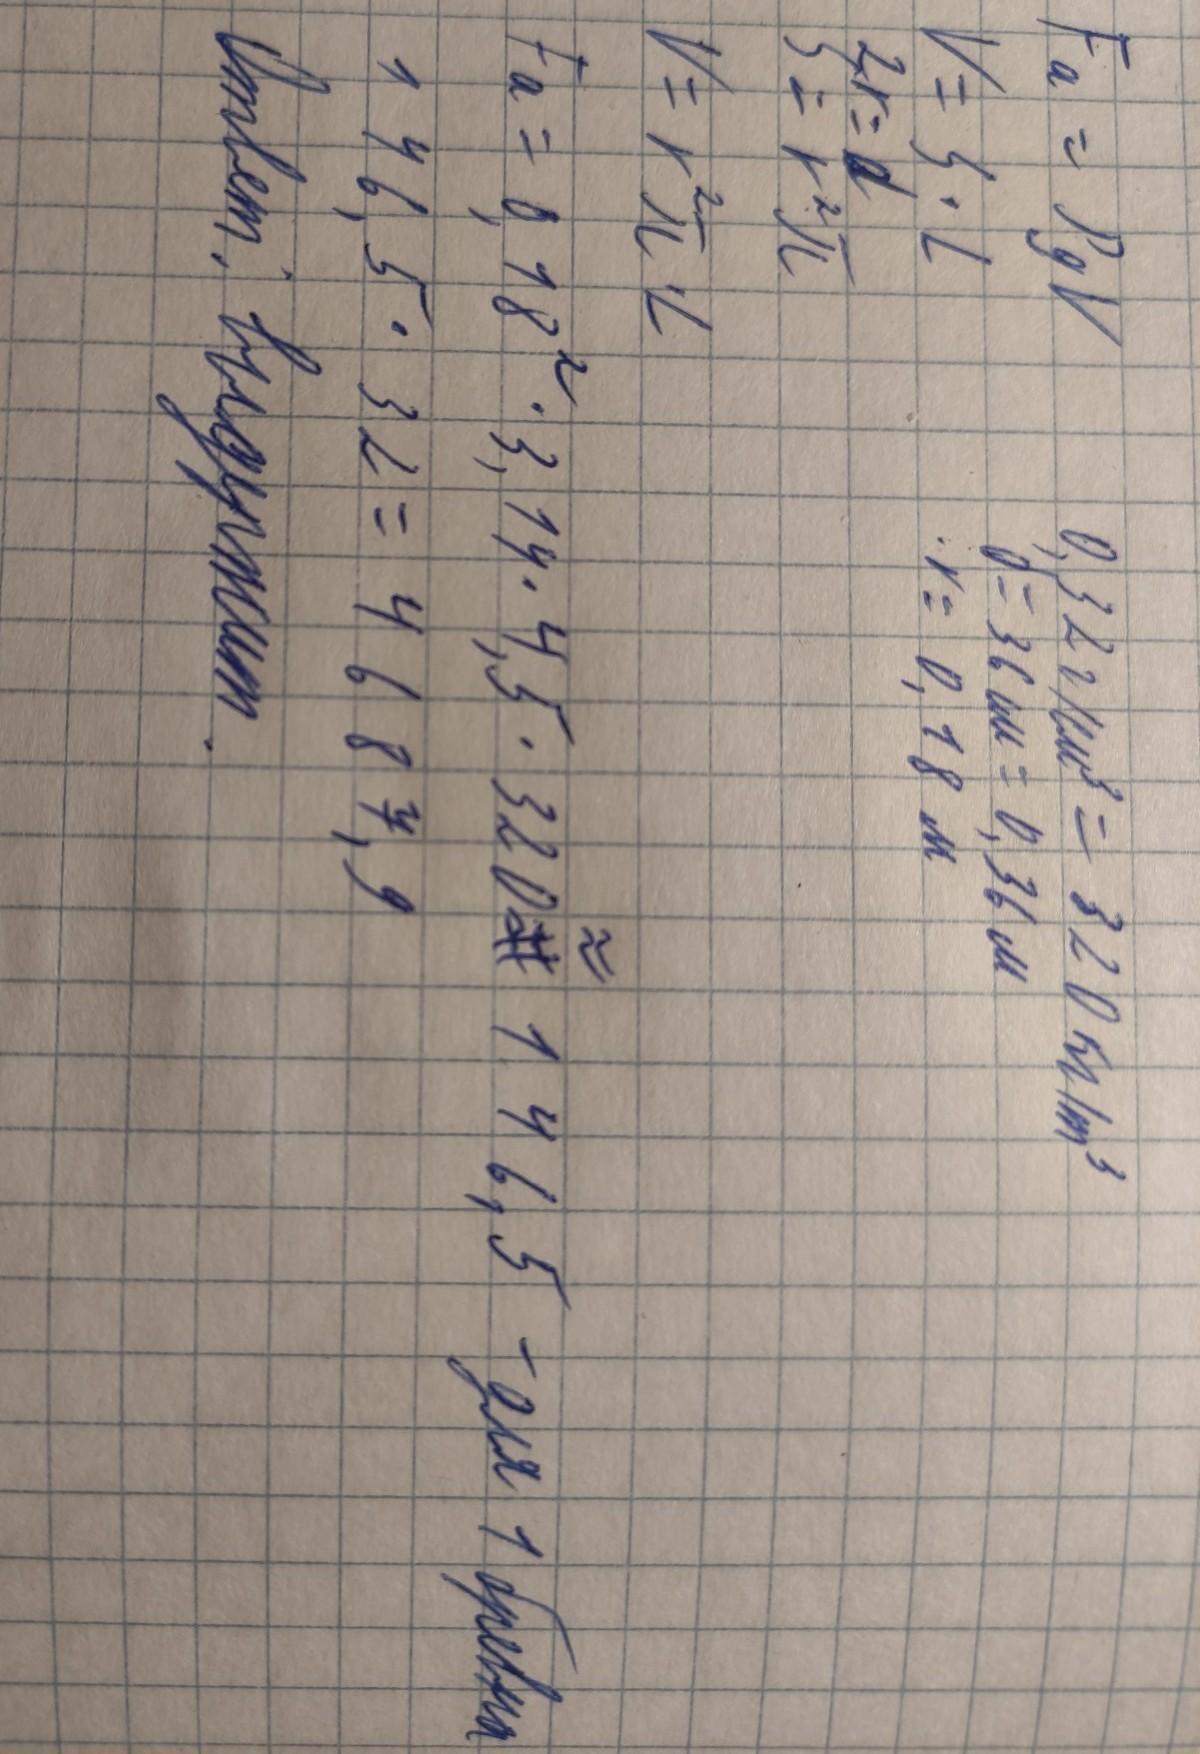 Fa = ρgV
0,32 г/см³ = 320 кг/m³
V = S · L
d = 36 см = 0,36 м
2r = d
r = 0,18 м
S = r²π
V = r²π · L
Fa = 0,18² · 3,14 · 4,5 · 320 ≈ 146,5 - для 1 бревна
146,5 · 32 = 4687,9
Ответ: Выдержит.